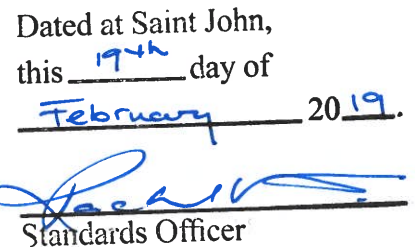 Dated at Saint John,
this 19th day of
February 2019.
Standards Officer